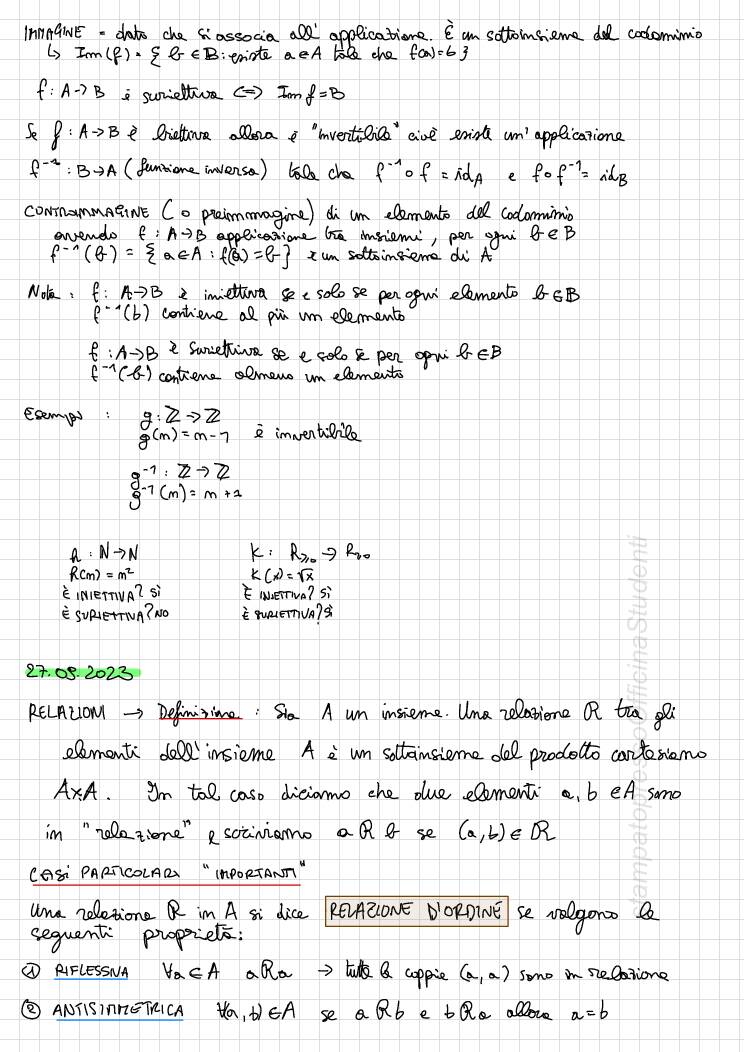 IMMAGINE = dato che si associa all' applicazione. È un sottoinsieme del codominio
↳ Im(f) = { b ∈ B : esiste a ∈ A tale che f(a) = b }
f : A → B è suriettiva ⟺ Im f = B
Se f : A → B è biettiva allora è "invertibile" cioè esiste un' applicazione
f⁻¹ : B → A (funzione inversa) tale che f⁻¹ ∘ f = id_A e f ∘ f⁻¹ = id_B
CONTROIMMAGINE (o preimmagine) di un elemento del codominio
avendo f : A → B applicazione tra insiemi, per ogni b ∈ B
f⁻¹(b) = { a ∈ A : f(a) = b } è un sottoinsieme di A
Nota : f : A → B è iniettiva se e solo se per ogni elemento b ∈ B
f⁻¹(b) contiene al più un elemento
f : A → B è suriettiva se e solo se per ogni b ∈ B
f⁻¹(b) contiene almeno un elemento
Esempio : g : ℤ → ℤ
g(m) = m - 1 è invertibile
g⁻¹ : ℤ → ℤ
g⁻¹(m) = m + 1
h : N → N
h(m) = m²
È INIETTIVA? SÌ
È SURIETTIVA? NO
K : R≥0 → R≥0
K(x) = √x
È INIETTIVA? SÌ
È SURIETTIVA? SÌ
27.09.2023
RELAZIONI → Definizione : Sia A un insieme. Una relazione R tra gli
elementi dell' insieme A è un sottoinsieme del prodotto cartesiano
A×A. In tal caso diciamo che due elementi a, b ∈ A sono
in "relazione" e scriviamo a R b se (a, b) ∈ R
CASI PARTICOLARI "IMPORTANTI"
Una relazione R in A si dice RELAZIONE D'ORDINE se valgono le
seguenti proprietà:
① RIFLESSIVA ∀a ∈ A a R a → tutte le coppie (a, a) sono in relazione
② ANTISIMMETRICA ∀(a, b) ∈ A se a R b e b R a allora a = b